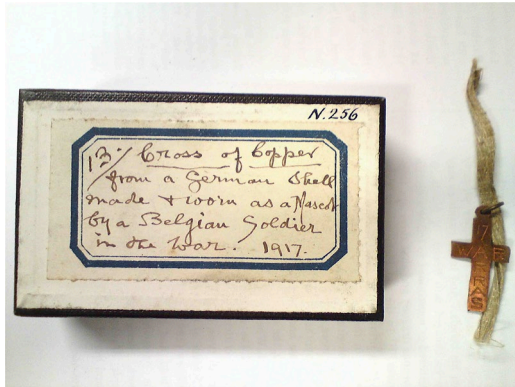 N.256
13/ Cross of Copper
from a German Shell
made & worn as a Mascot
by a Belgian Soldier
in the War. 1917.
17
ARRAS